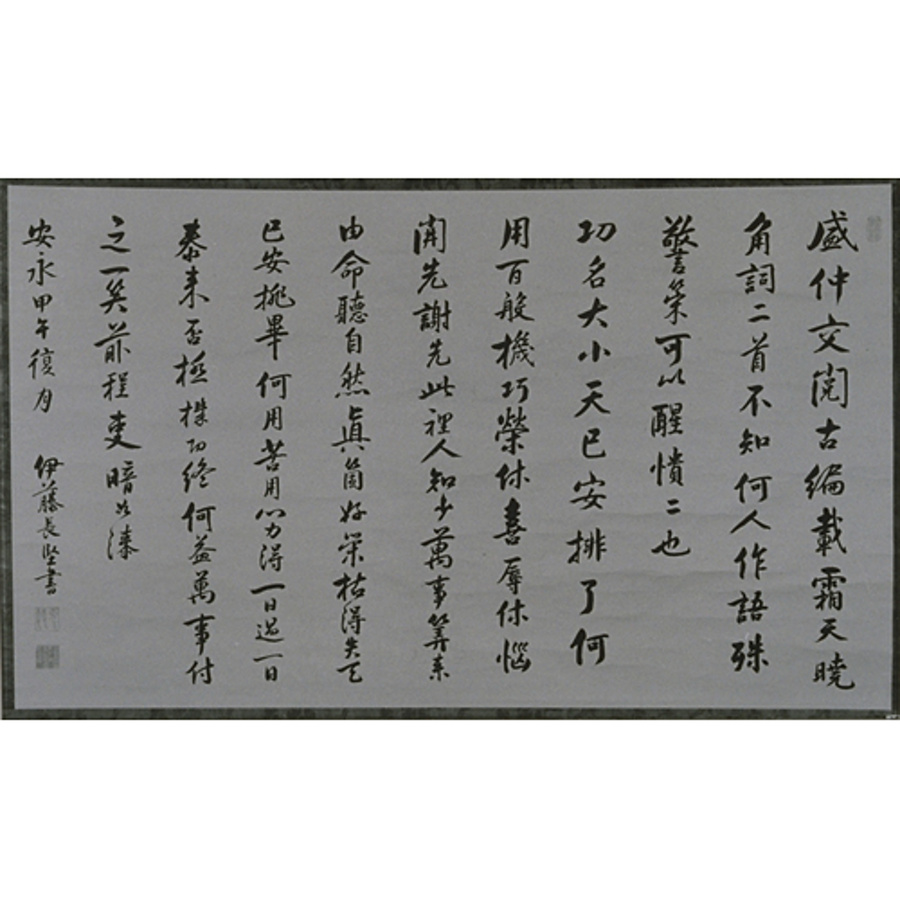 盛仲文閲古編載霜天曉
角詞二首不知何人作語殊
警策可以醒憒二也
功名大小天已安排了何
用百般機巧榮休喜辱休惱
閑先謝先此裡人知少萬事筭來
由命聽自然眞箇好榮枯得失天
已安排畢何用苦用心力得一日過一日
泰来否極機功終何益萬事付
之一笑前程事暗如漆
安永甲午復月 伊藤長堅書